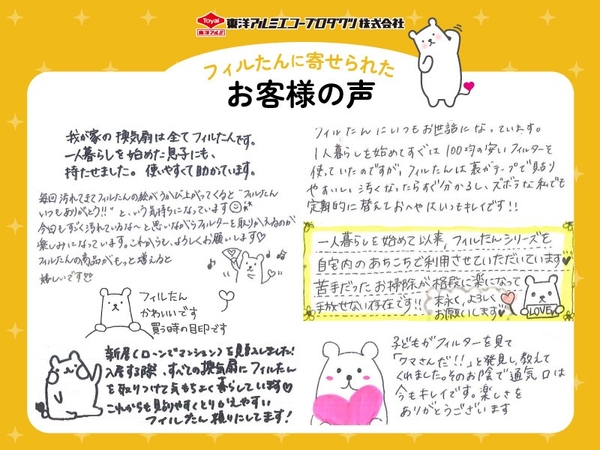 Toyal
東洋アルミ
東洋アルミエコープロダクツ株式会社
フィルたんに寄せられた
お客様の声
我が家の換気扇は全てフィルたんです。
一人暮らしを始めた息子にも、
持たせました。使いやすくて助かっています。
毎回汚れてきてフィルたんの絵がうかび上がってくると"フィルたん
いつもありがとう!!"という気持ちになっています
今日もすごく汚れているな～と思いながらフィルターを取りかえるのが
楽しみになっています。これからも、よろしくお願いします♡
フィルたんの商品がもっと増えると
嬉しいです
フィルたん
かわいいです
買う時の目印です
新居(ローンでマンション)を購入しました!
入居する際、すべての換気扇にフィルたん
を取りつけて気もちよく暮らしています♥
これからも貼りやすくとりかえやすい
フィルたん頼りにしてます!
フィルたんにいつもお世話になっています。
1人暮らしを始めてすぐは100均の安いフィルターを
使っていたのですが、フィルたんは裏がテープで貼り
やすいし、汚くなったらすぐ分かるし、ズボラな私でも
定期的に替えておへやはいつもキレイです!!
一人暮らしを始めて以来、フィルたんシリーズを
自宅内のあちこちで利用させていただいています♥
苦手だったお掃除が格段に楽になって
手放せない存在です!!
末永く、よろしく
お願いします♥
LOVE
子どもがフィルターを見て
「クマさんだ!!」と発見し、教えて
くれました。そのお陰で通気口は
今もキレイです。楽しさを
ありがとうございます